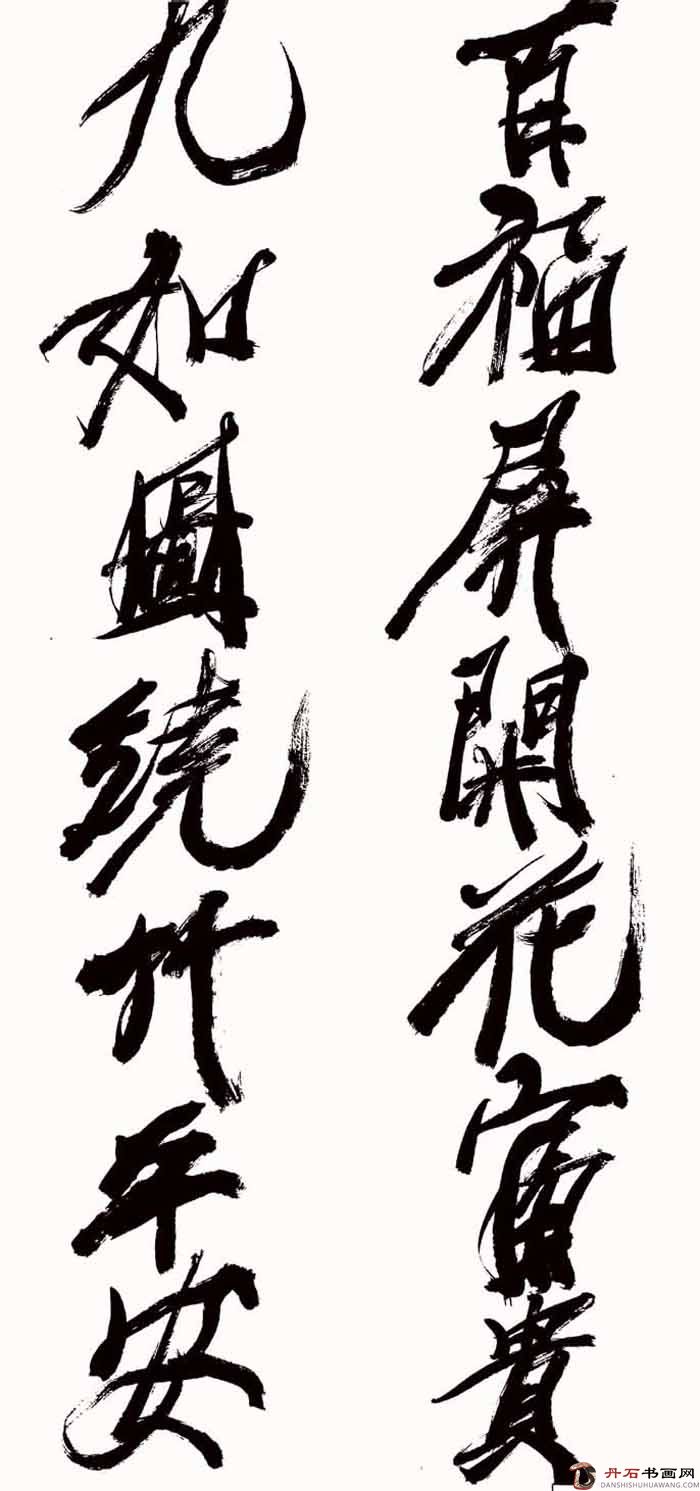 百福屏開花富貴
九如圖繞竹平安
丹石书画网
DANSHISHUHUAWANG.COM